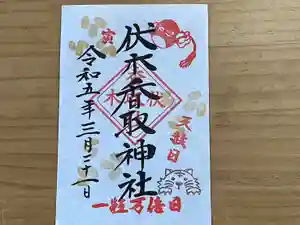 寅
伏木香取神社
令和五年三月二十一日
天赦日
一粒万倍日